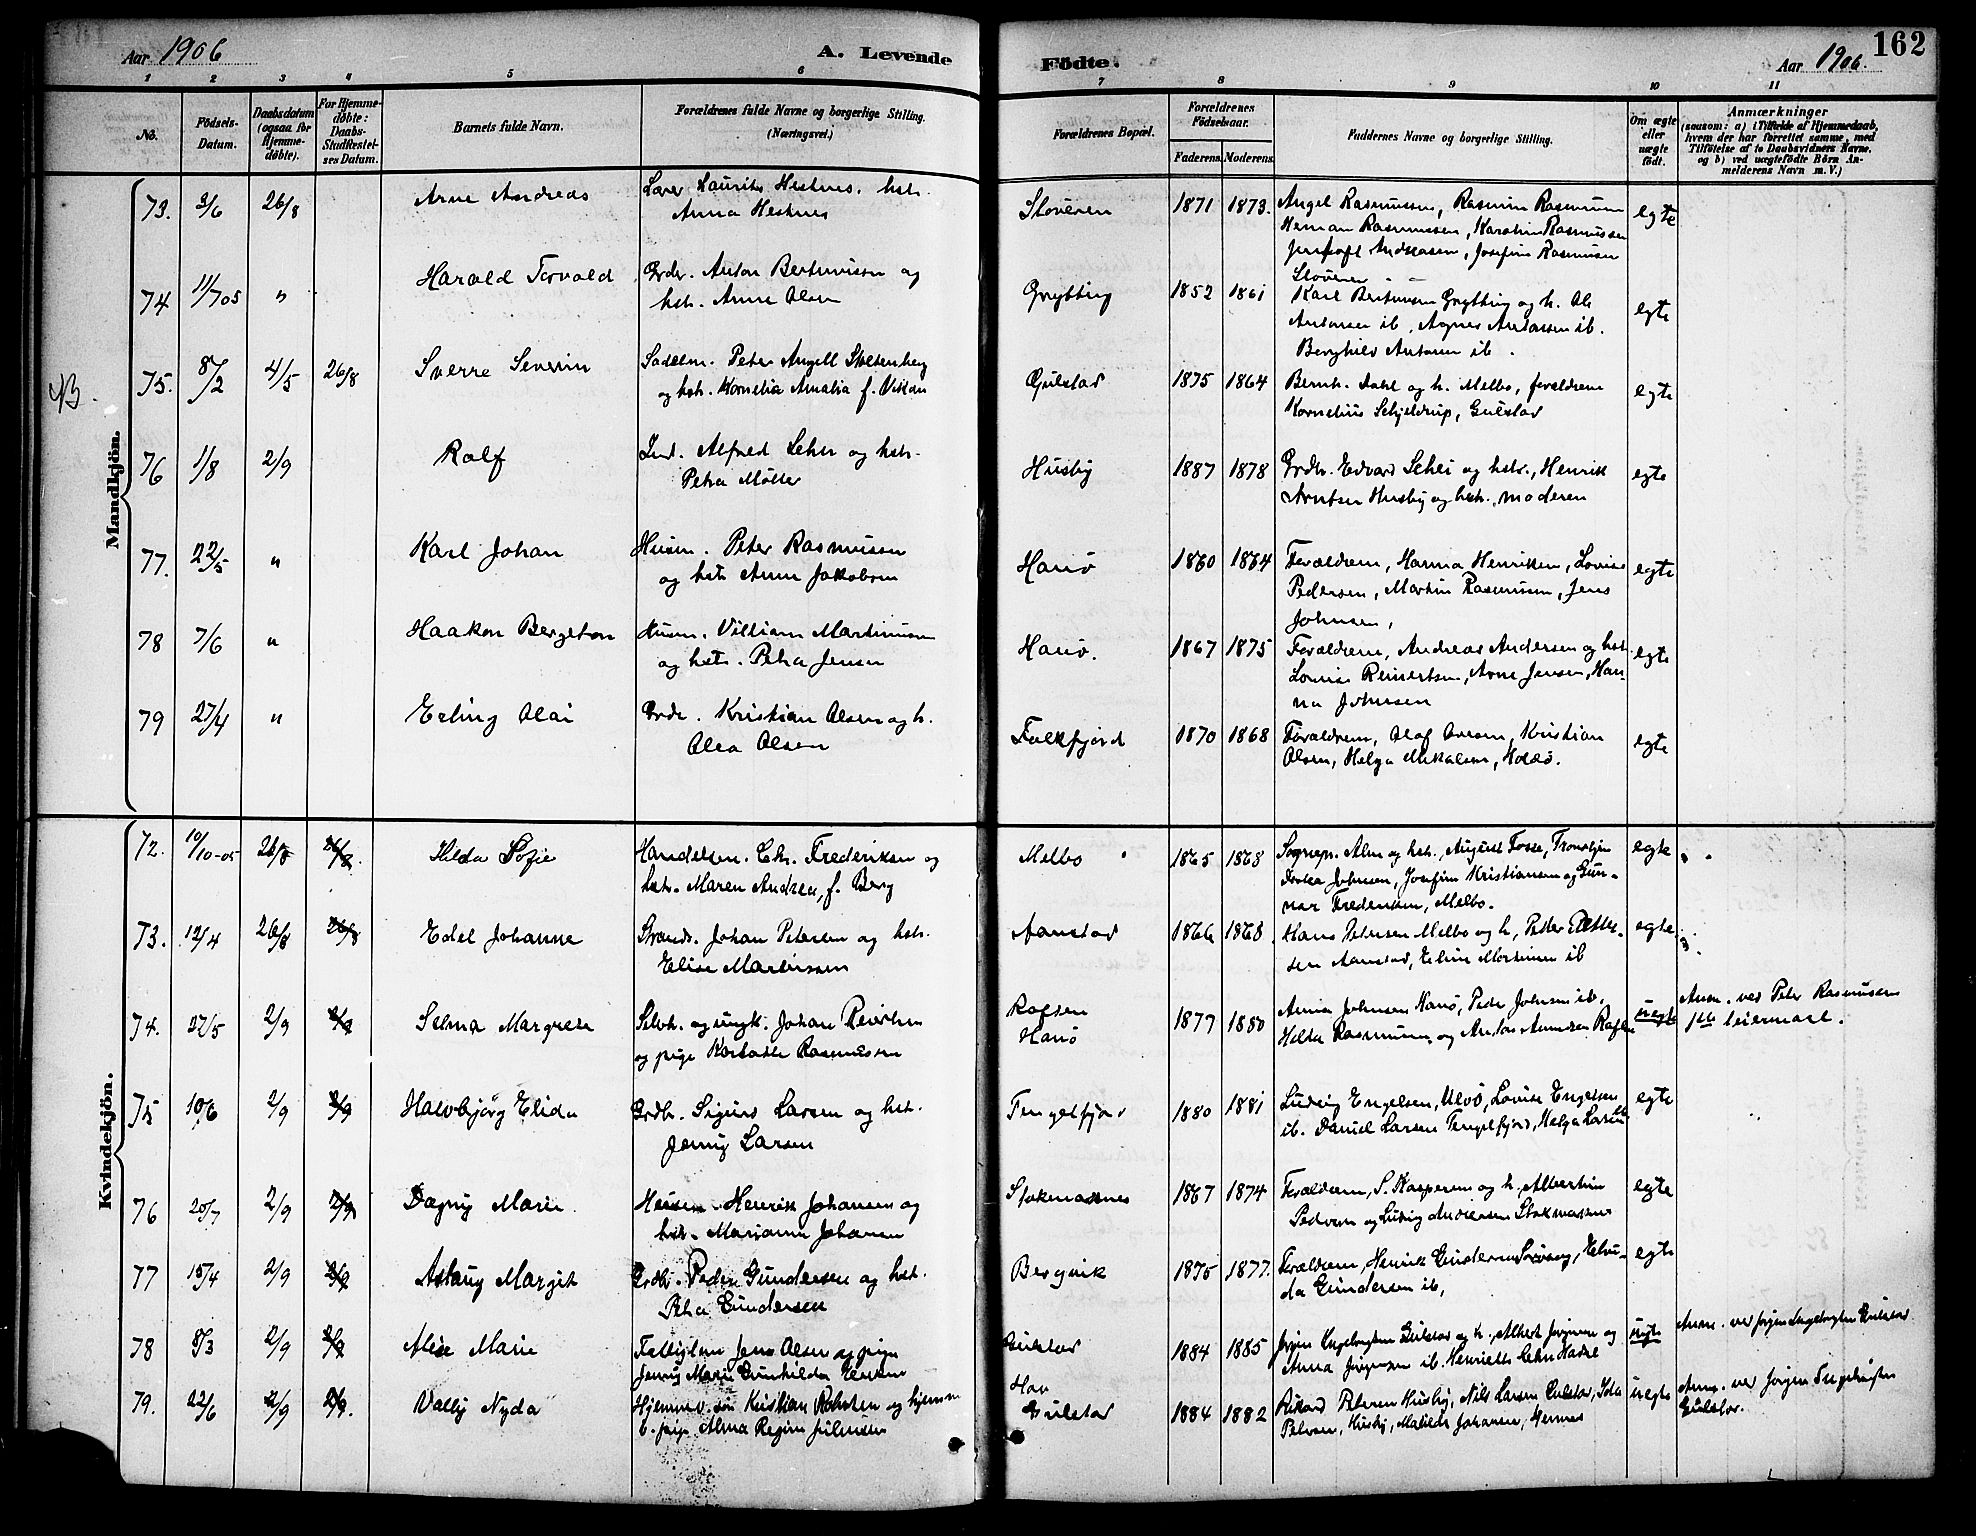 Aar 1906
A. Levende
Födte.
Aar 1906.
162
1 2 3 4 5 6 7 8 9 10 11
No.
Födsels-
Datum.
Daabsdatum
(ogsaa for
Hjemme-
döbte).
For Hjemme-
döbte:
Daabs-
Stadfæstel-
ses Datum.
Barnets fulde Navn.
Forældrenes fulde Navne og borgerlige Stilling.
(Næringsvei.)
Forældrenes Bopæl.
Forældrenes
Födselsaar.
Faderens. Moderens.
Faddernes Navne og borgerlige Stilling.
Om ægte
eller
uægte
født.
Anmærkninger
(saasom: a) i Tilfælde af Hjemmedaab,
hvem der har forrettet samme, med
Tilföielse af to Daabsvidners Navne,
og b) ved uægtefödte Börn An-
melderens Navn m. V.)
Mandkjön.
73. 3/6 26/8 Arne Andreas
Laurits Hestnes, hstr.
Anna Hestnes
Stoveren 1871 1873.
Angel Rasmussen, Rasmus Rasmussen
Herman Rasmussen, Rasmussen
Andreasen, Josefine Rasmussen
egte
74 11/7 05 " Harald Torvald
Grdr. Anton Bertinussen og
hstr. Anne Olsen
Grytting 1852 1861
Karl Grytting og h. Ole
Antonsen ib, Agnes Antonsen ib.
Antonsen ib.
egte
75. 8/2 4/5 26/8 Sverre Severin
Sadelm. Peter Angell Stoltenberg
og hstr. Kornelia Amalia f.
Gulstad 1875 1864
Bernh. Dahl og h. Melbo, forældrene
Kornelius Schjeldrup, Gulstad
egte
76 1/8 2/9 Ralf
Alfred og hstr.
Petra Möller
Husby 1887 1878
Grdbr. Edvard Schei og hstr., Henrik
Arntsen Husby og hstr., moderen
egte
77. 22/5 " Karl Johan
Husm. Peter Rasmussen
og hstr. Anne Jakobsen
Hanö 1860 1864
Forældrene, Hanna Henriksen, Lovise
Pedersen, Martin Rasmussen, Jens
Johnsen,
egte
78 7/6 " Haakon Bergeton
Husm. Villiam Martinussen
og hstr. Petra Jensen
Hanö. 1867 1875
Forældrene, Andreas Andersen og hstr.
Lovise Reinertsen, Arne Jensen, Han-
na Johnsen
egte
79 27/4 " Erling Olai
Grdr. Kristian Olsen og h.
Olea Olsen
Falkfjord 1870 1868
Forældrene, Olaf Kristian
Olsen, Helga Mikalsen,
egte
Kvindekjön.
72. 10/10-05 26/8 26/8. Hilda Sofie
Handelsm. Chr. Frederiksen og
hstr. Maren Andrea, f. Berg
Melbo 1865 1868
Sognepr. Alm og hstr., August Fosse, Trondhjem
Johnsen, Josefine Kristiansen og Gun-
nar Frederiksen, Melbo.
egte
73. 12/4 26/8 26/8 Edel Johanne
Strands. Johan Petersen og hstr.
Elise Martinssen
Aanstad 1866 1868
Hans Petersen Melbo og h, Peder Petter-
sen Aanstad, Eline Martinsen ib
egte
74. 27/5 2/9 2/9 Selma Margrete
Selvh. og ungk. Johan
og pige Rasmussen
Rafsen
Hanö
1877 1880
Anna Johnsen Hanö, Peder Johnsen ib,
Helda Rasmussen og Anton Amundsen Rafsen
uegte
Anm. ved Peter Rasmussen
1ste leiermaal.
75 10/6 2/9 2/9 Halvbjörg Elida
Grdbr. Sigurd Larsen og hst.
Jenny Larsen
Tengelfjord 1880 1881
Ludvig Engelsen, Ulvö, Lovise Engelsen
ib. Daniel Larsen Tengelfjord, Helga Larsen ib
egte
76 20/7 2/9 2/9 Dagny Marie
Husm. Henrik Johansen og
hstr. Marianne Johansen
Stokmarknes 1867 1874
Forældrene, S. Kaspersen og h, Albertine
Pedersen og Ludvig Andersen Stokmarknes
egte
77 15/4 2/9 2/9 Aslaug Margit
Grdbr. Peder Gundersen og hst.
Petra Gundersen
Bergvik 1875 1877.
Forældrene, Henrik Gundersen
da Gundersen ib,
egte
78 8/3 2/9 2/9 Alise Marie
Jens Olsen og pige
Jenny Marie Gunhilda
Gulstad 1884 1885
Jörgen Ingebrigtsen Gulstad og h., Albert Jörgensen og
Anna Jörgensen ib. Henriette
uegte
Anm. ved Jörgen Ingebrigtsen Gulstad
79. 22/6 2/9 2/9. Vally Nyda
Hjemmev. sön Kristian og hjemme
v. pige Alma Regine
Gulstad
1884 1882
Rikard Petersen Husby, Nils Larsen Gulstad, Ida
Petersen, Husby, Matilde Johansen,
uegte
Anm. ved Jörgen Ingebrigtsen
Gulstad.